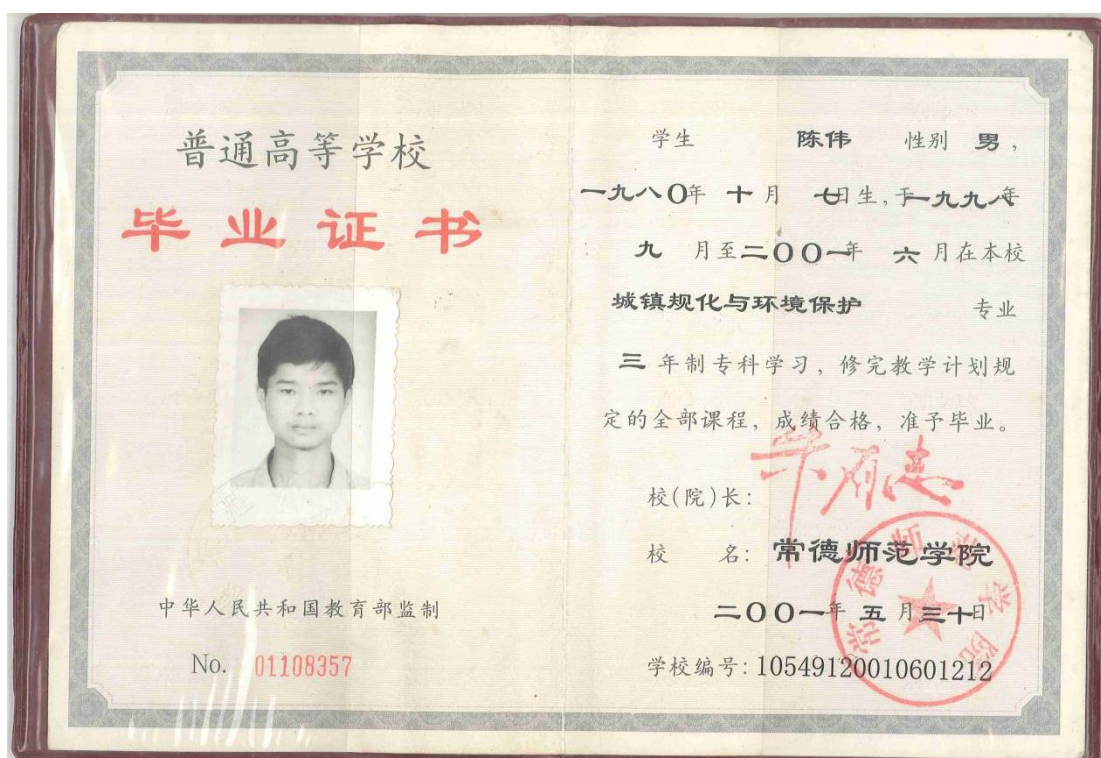 普通高等学校
毕业证书
中华人民共和国教育部监制
No. 01108357
学生 陈伟 性别 男，
一九八〇年 十月 七日生，于一九九八年
九 月至二〇〇一年 六 月在本校
城镇规化与环境保护 专业
三 年制专科学习，修完教学计划规
定的全部课程，成绩合格，准予毕业。
校(院)长:
校 名: 常德师范学院
二〇〇一年 五 月三十日
学校编号: 10549120010601212
常德师范学院